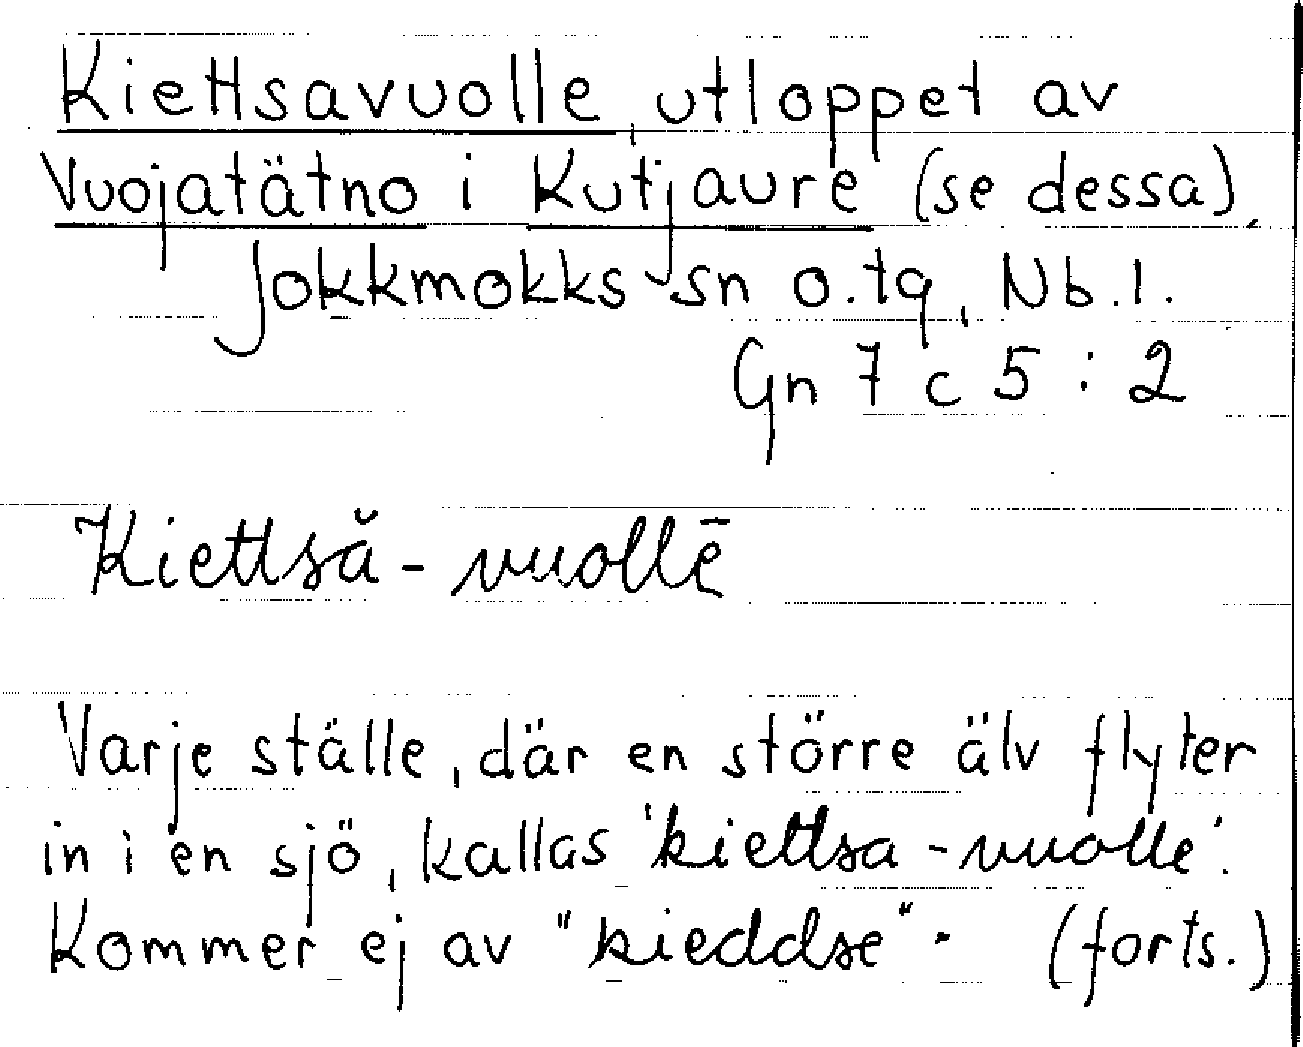 Kiettsavuolle, utloppet av
Vuojatätno i Kutjaure (se dessa),
Jokkmokks sn o. tg, Nb. l.
Gn 7 c 5 : 2
Kiettsă - vuollē
Varje ställe, där en större älv flyter
in i en sjö, kallas 'kiettsa - vuolle'.
Kommer ej av "kieddse". (forts.)